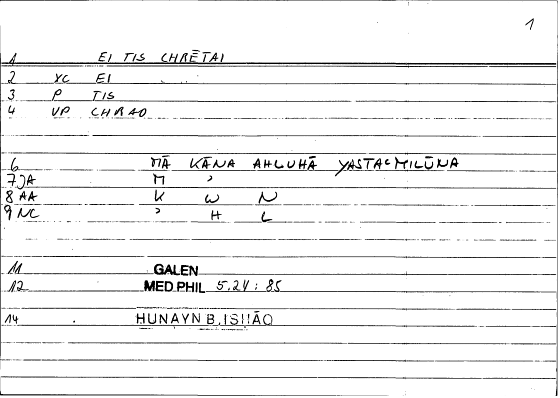 1
1 EI TIS CHRĒTAI
2 XC EI
3 P TIS
4 VP CHRAO
6 MĀ KĀNA AHLUHĀ YASTAcMILŪNA
7 JA M ʾ
8 AA K W N
9 NC ʾ H L
11 GALEN
12 MED PHIL 5.24 : 85
14 HUNAYN B. ISHĀQ